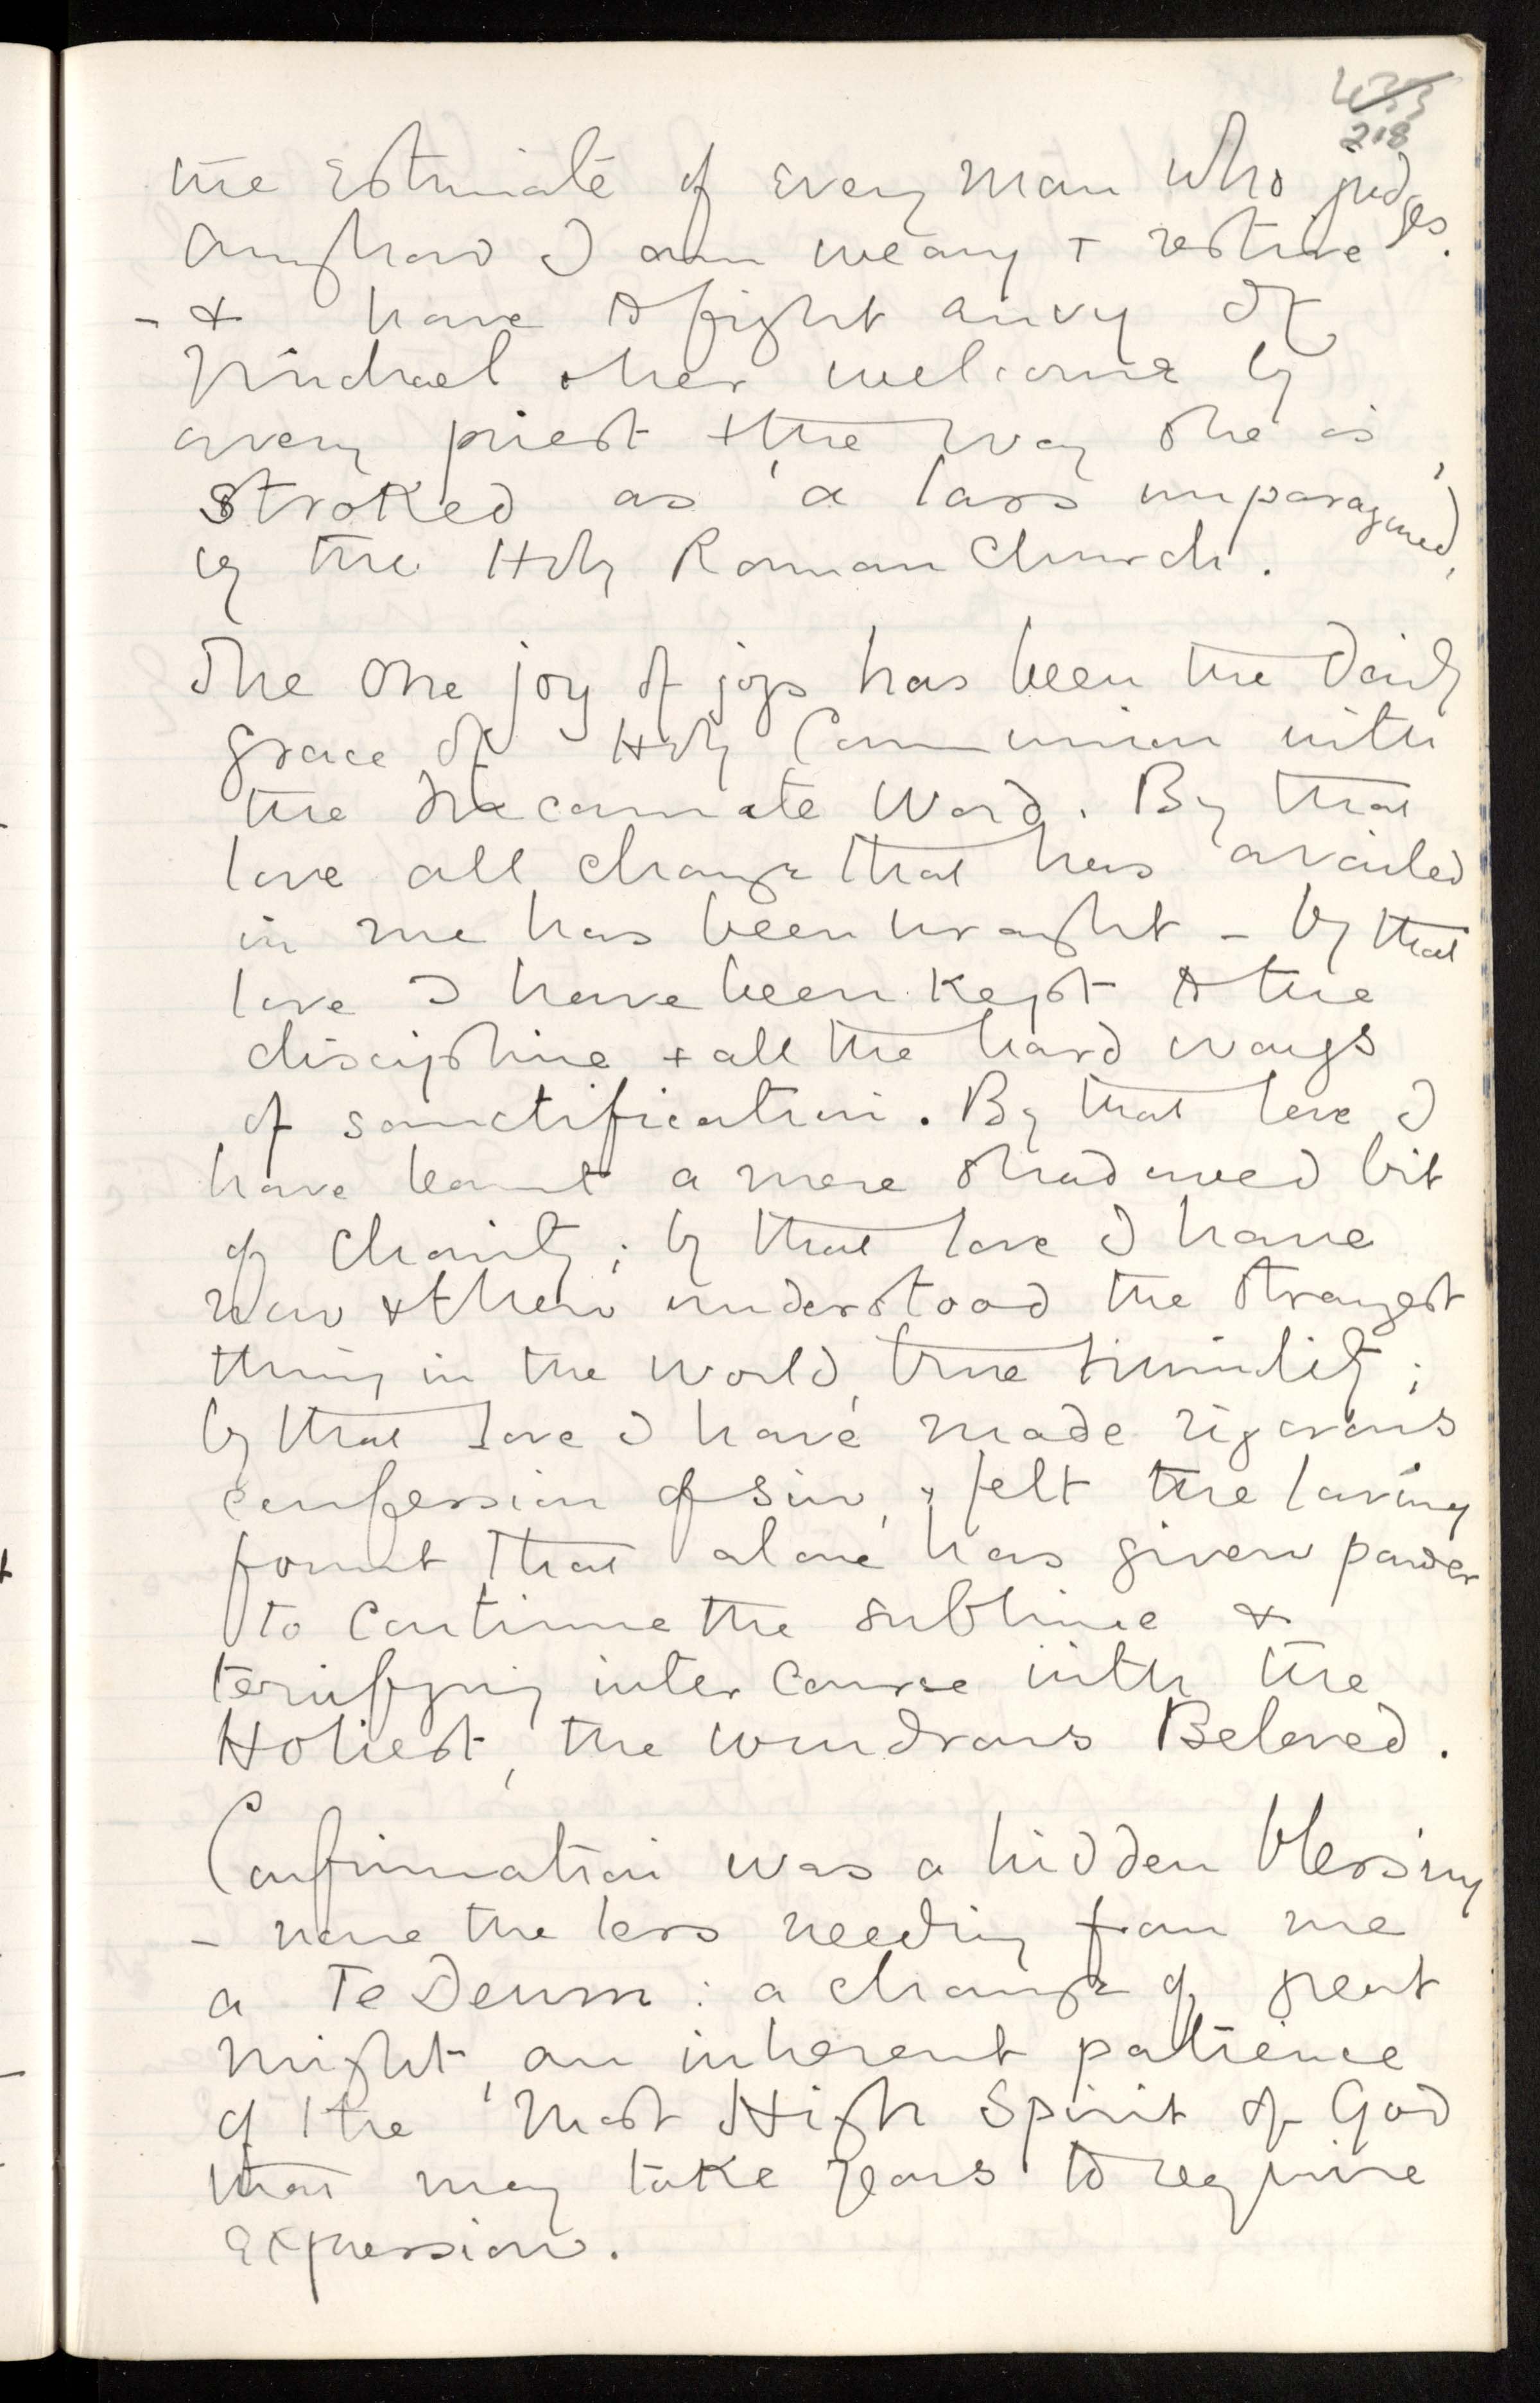 433
218
the estimate of every man who judges.
Anyhow I am weary + restive
- & have to fight envy of
Michael & her welcome by
every priest & the way she is,
stroked as 'a lass unparagoned',
by the Holy Roman Church.
The one joy of joys has been the daily
grace of Holy Communion with
the Incarnate Word. By that
love all change that has availed
in me has been wrought - by that
love I have been kept to the
discipline & all the hard ways
of sanctification. By that love I
have learnt a mere shadowed bit
of Charity; by that love I have
now & then understood the strangest
thing in the world, true humility;
by that love I have made rigorous
confession of sin, & felt the laving
fount that alone has given power
to continue the sublime &
terrifying intercourse with the
Holiest, the wondrous Beloved.
Confirmation was a hidden blessing
- none the less needing from me
a Te Deum: a change of great
might, an inherent patience
of the Most High Spirit of God
that may take years to require
expression.